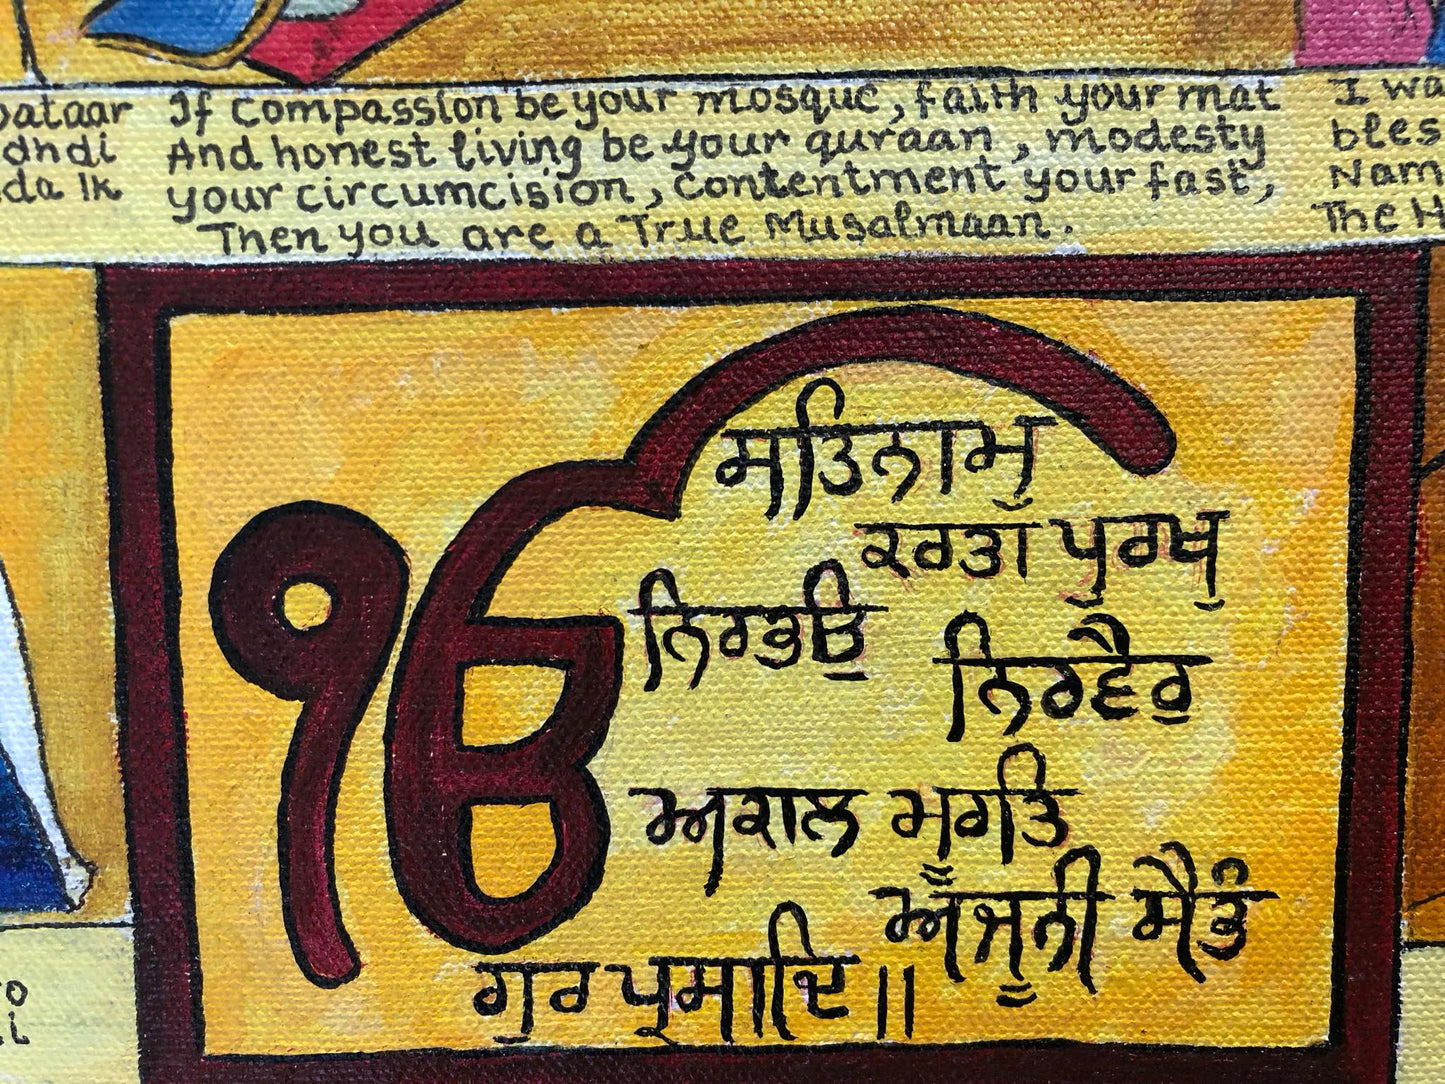 bataar
dhdi
da Ik
If compassion be your mosque, faith your mat
And honest living be your quraan, modesty
your circumcision, contentment your fast,
Then you are a True Musalmaan.
I wa
bles
Nam
The H
ੴ
ਸਤਿਨਾਮੁ
ਕਰਤਾ ਪੁਰਖੁ
ਨਿਰਭਉ
ਨਿਰਵੈਰੁ
ਅਕਾਲ ਮੂਰਤਿ
ਅਜੂਨੀ ਸੈਭੰ
ਗੁਰ ਪ੍ਰਸਾਦਿ ॥